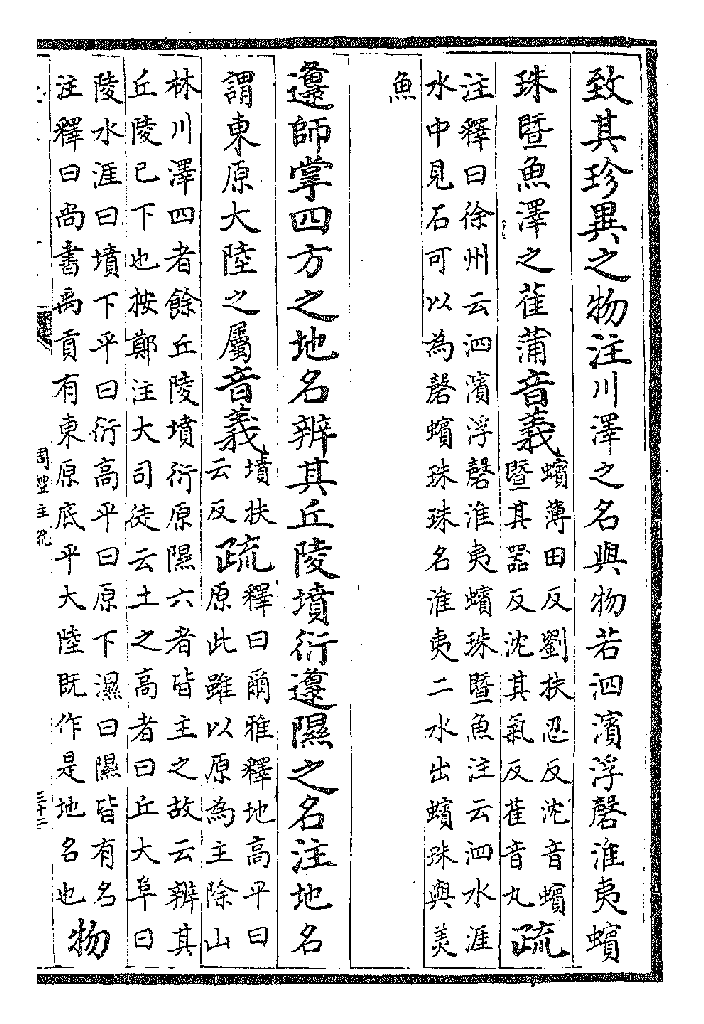 致其珍異之物注川澤之名與物若泗濱浮磬淮夷蠙
珠暨魚澤之萑蒲音義蠙薄田反劉扶忍反沈音蠙
暨其器反沈其氣反萑音丸疏
注釋曰徐州云泗濱浮磬淮夷蠙珠暨魚注云泗水涯
水中見石可以為磬蠙珠珠名淮夷二水出蠙珠與美
魚
邍師掌四方之地名辨其丘陵墳衍邍隰之名注地名
謂東原大陸之屬音義墳扶
云反疏釋曰爾雅釋地高平曰
原此雖以原為主除山
林川澤四者餘丘陵墳衍原隰六者皆主之故云辨其
丘陵已下也按鄭注大司徒云土之高者曰丘大阜曰
陵水涯曰墳下平曰衍高平曰原下濕曰隰皆有名
注釋曰尚書禹貢有東原底平大陸既作是地名也物
周禮註疏